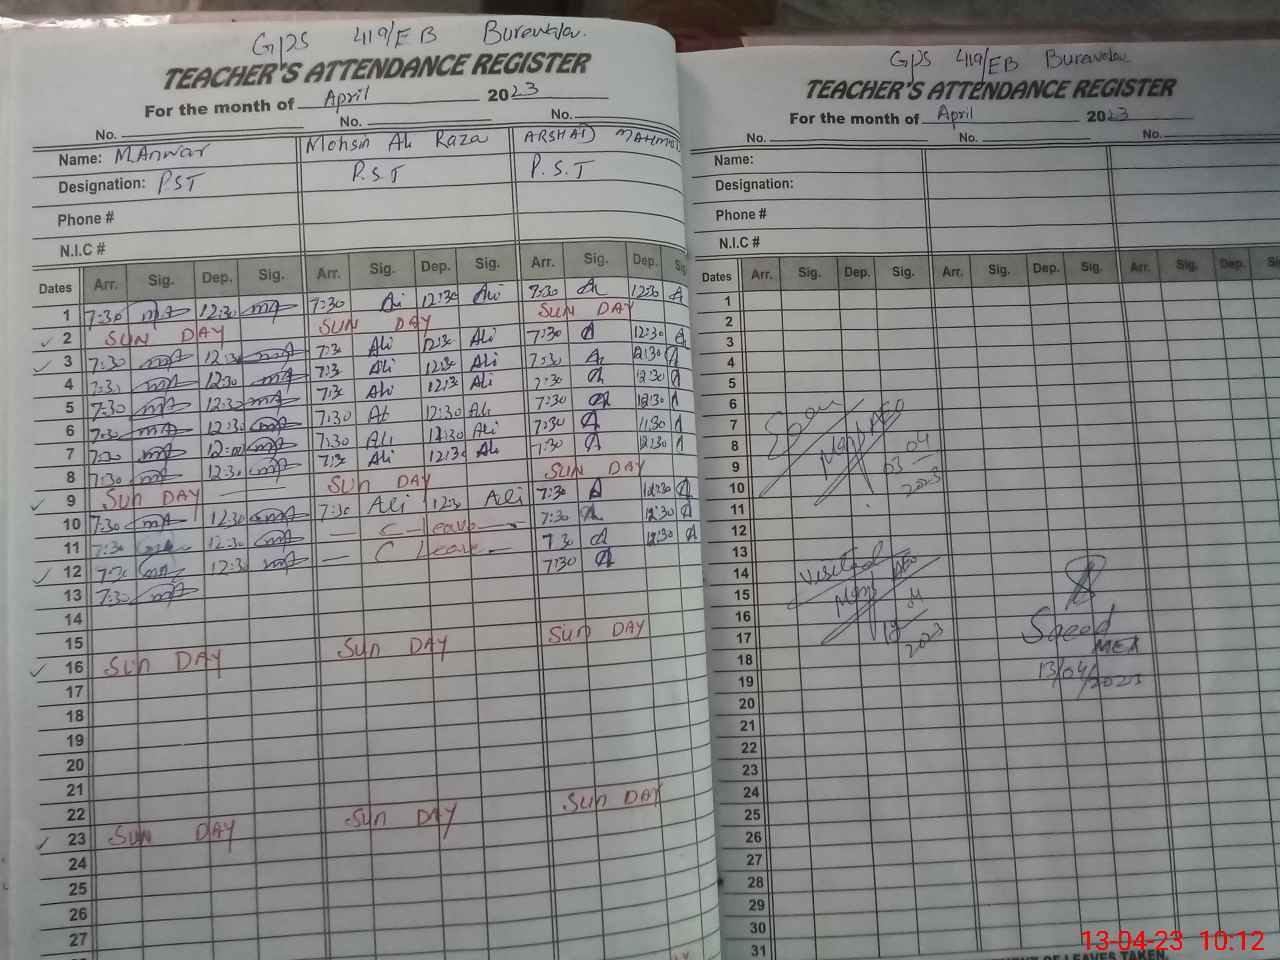 GPS 419/EB Burewala.
TEACHER'S ATTENDANCE REGISTER
For the month of April 2023
No. No. No.
Name: M.Anwar Mohsin Ali Raza ARSHAD MAHMOOD
Designation: PST P.S.T P.S.T
Phone #
N.I.C #
Dates Arr. Sig. Dep. Sig. Arr. Sig. Dep. Sig. Arr. Sig. Dep.
1 7:30 mA 12:30 mA 7:30 Ali 12:30 Ali 7:30 A 12:30 A
2 SUN DAY SUN DAY SUN DAY
3 7:30 mA 12:30 mA 7:30 Ali 12:30 Ali 7:30 A 12:30 A
4 7:30 mA 12:30 mA 7:30 Ali 12:30 Ali 7:30 A 12:30 A
5 7:30 mA 12:30 mA 7:30 Ali 12:30 Ali 7:30 A 12:30 A
6 7:30 mA 12:30 mA 7:30 Ali 12:30 Ali 7:30 A 12:30 A
7 7:30 mA 12:00 mA 7:30 Ali 12:30 Ali 7:30 A 11:30 A
8 7:30 mA 12:30 mA 7:30 Ali 12:30 Ali 7:30 A 12:30 A
9 SUN DAY SUN DAY SUN DAY
10 7:30 mA 12:30 mA 7:30 Ali 12:30 Ali 7:30 A 12:30 A
11 7:30 12:30 mA C-Leave 7:30 A 12:30 A
12 7:30 mA 12:30 mA C Leave 7:30 A 12:30 A
13 7:30 mA 7:30 A
14
15
16 SUN DAY SUN DAY SUN DAY
17
18
19
20
21
22
23 SUN DAY SUN DAY SUN DAY
24
25
26
27
GPS 419/EB Burewala
TEACHER'S ATTENDANCE REGISTER
For the month of April 2023
No. No. No.
Name:
Designation:
Phone #
N.I.C #
Dates Arr. Sig. Dep. Sig. Arr. Sig. Dep. Sig. Arr. Sig. Dep.
1
2
3
4
5
6
7 AEO
8
9 03 04
10 2023
11
12
13
14 Visited AEO
15
16 04
17 12 2023 Saeed
18 MEA
19 13/04/2023
20
21
22
23
24
25
26
27
28
29
30
31
OF LEAVES TAKEN.
13-04-23 10:12